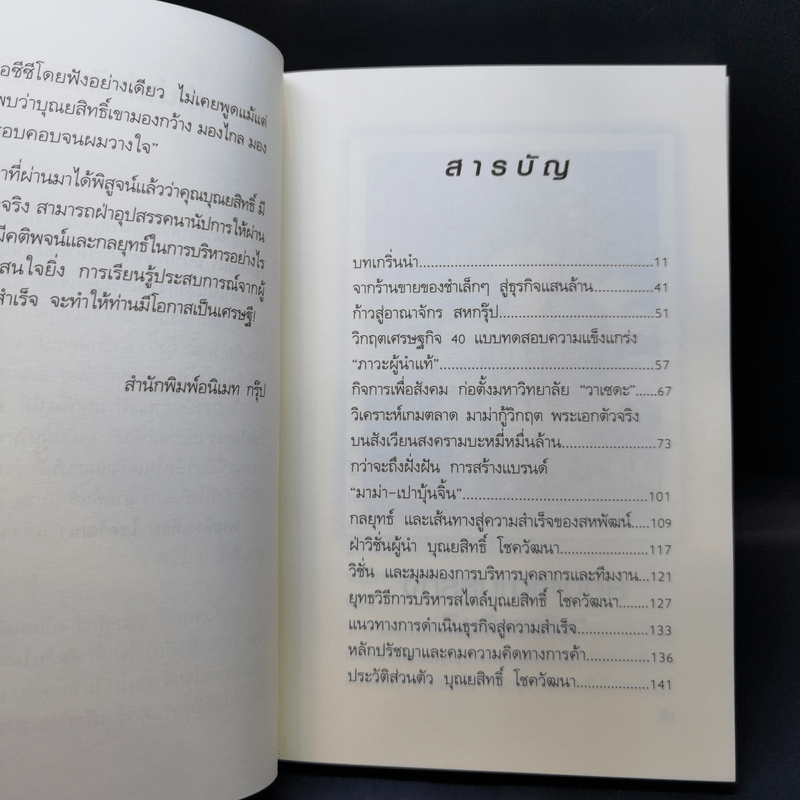 อซีซีโดยฟังอย่างเดียว ไม่เคยพูดแม้แต่
พบว่าบุณยสิทธิ์เขามองกว้าง มองไกล มอง
รอบคอบจนผมวางใจ”
าที่ผ่านมาได้พิสูจน์แล้วว่าคุณบุณยสิทธิ์ มี
จริง สามารถฝ่าอุปสรรคนานัปการให้ผ่าน
มีคติพจน์และกลยุทธ์ในการบริหารอย่างไร
สนใจยิ่ง การเรียนรู้ประสบการณ์จากผู้
สำเร็จ จะทำให้ท่านมีโอกาสเป็นเศรษฐี!
สำนักพิมพ์อนิเมท กรุ๊ป
สารบัญ
บทเกริ่นนำ..................................................11
จากร้านขายของชำเล็กๆ สู่ธุรกิจแสนล้าน............41
ก้าวสู่อาณาจักร สหกรุ๊ป..................................51
วิกฤตเศรษฐกิจ 40 แบบทดสอบความแข็งแกร่ง
“ภาวะผู้นำแท้”..............................................57
กิจการเพื่อสังคม ก่อตั้งมหาวิทยาลัย “วาเซดะ”......67
วิเคราะห์เกมตลาด มาม่ากู้วิกฤต พระเอกตัวจริง
บนสังเวียนสงครามบะหมี่หมื่นล้าน....................73
กว่าจะถึงฝั่งฝัน การสร้างแบรนด์
“มาม่า-เปาบุ้นจิ้น”........................................101
กลยุทธ์ และเส้นทางสู่ความสำเร็จของสหพัฒน์....109
ฝ่าวิชั่นผู้นำ บุณยสิทธิ์ โชควัฒนา....................117
วิชั่น และมุมมองการบริหารบุคลากรและทีมงาน...121
ยุทธวิธีการบริหารสไตล์บุณยสิทธิ์ โชควัฒนา.......127
แนวทางการดำเนินธุรกิจสู่ความสำเร็จ...............133
หลักปรัชญาและคมความคิดทางการค้า.............136
ประวัติส่วนตัว บุณยสิทธิ์ โชควัฒนา.................141